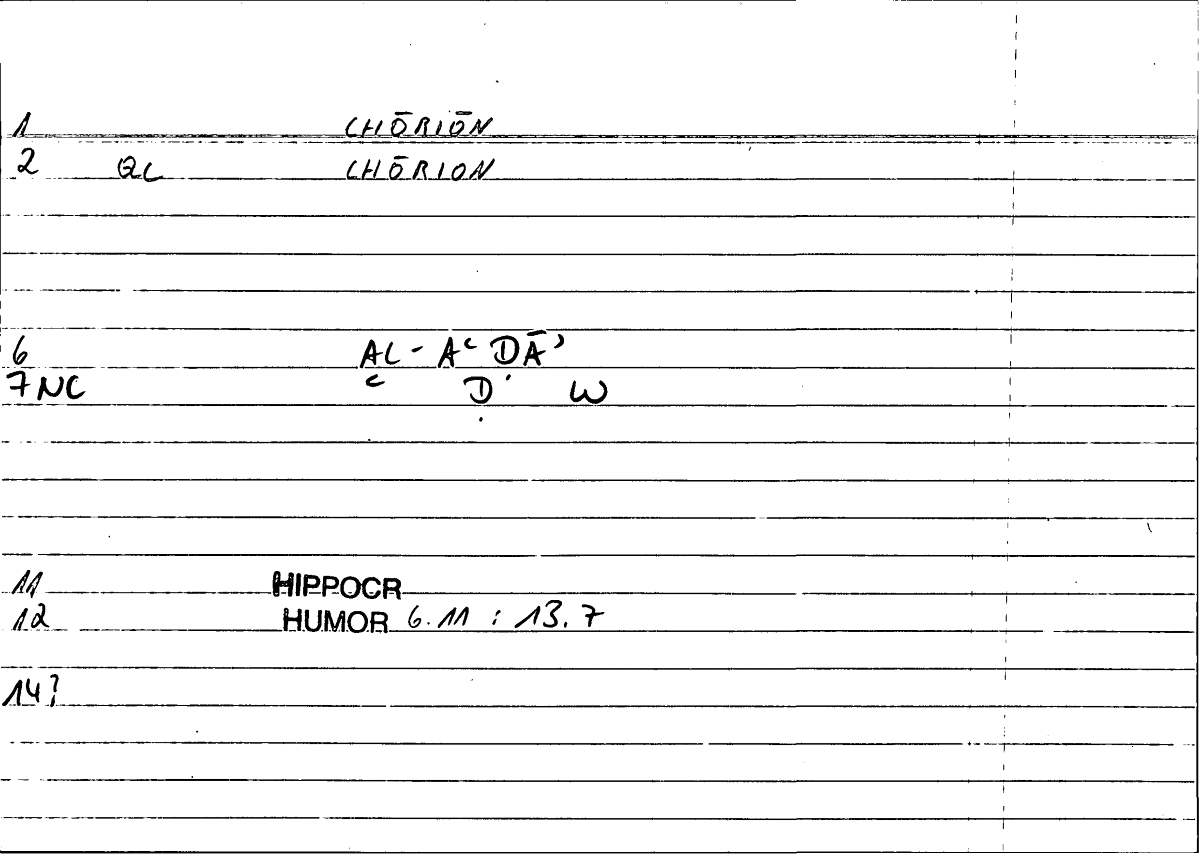 1 CHŌRIŌN
2 QC CHŌRION
6 AL-AʿḌĀʾ
7 NC ʿ Ḍ W
11 HIPPOCR
12 HUMOR 6.11 : 13.7
14?